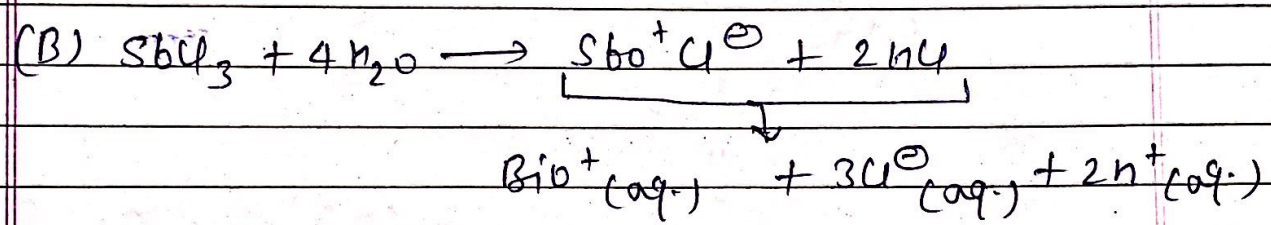 (B) SbCl₃ + 4H₂O ⟶ SbO⁺Cl⊖ + 2HCl
BiO⁺(aq.) + 3Cl⊖(aq.) + 2H⁺(aq.)